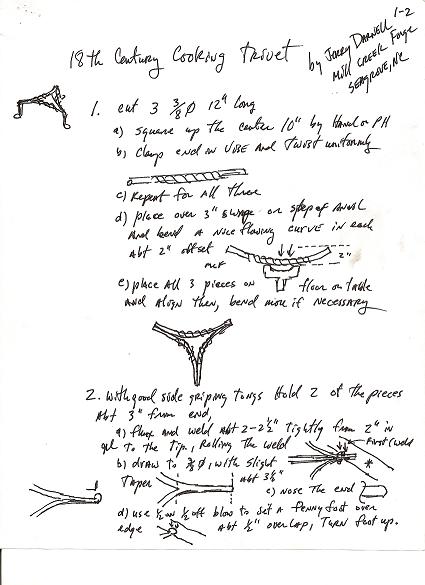 1-2
18th Century Cooking Trivet
by Jerry Darnell
Mill Creek Forge
Seagrove, NC
1. cut 3 3/8 Ø 12" long
a) square up the center 10" by Hand or PH
b) Clamp end in Vise and Twist uniformly
c) Repeat for All Three
d) place over 3" swage or step of Anvil
And bend A Nice flowing curve in each
Abt 2" offset
2"
e) place All 3 pieces on floor or table
And Align then, bend more if Necessary
2. With good side griping tongs Hold 2 of the pieces
Abt 3" from end,
a) flux and weld Abt 2-2 1/2" tightly from 2" in
to the tip, Rolling the weld
First weld
b) draw to 3/8 Ø, with slight
Taper
Abt 3 1/2"
c) Nose The end
d) use 1/2 on 1/2 off blow to set A penny foot over
edge
Abt 1/2" overlap, Turn foot up.